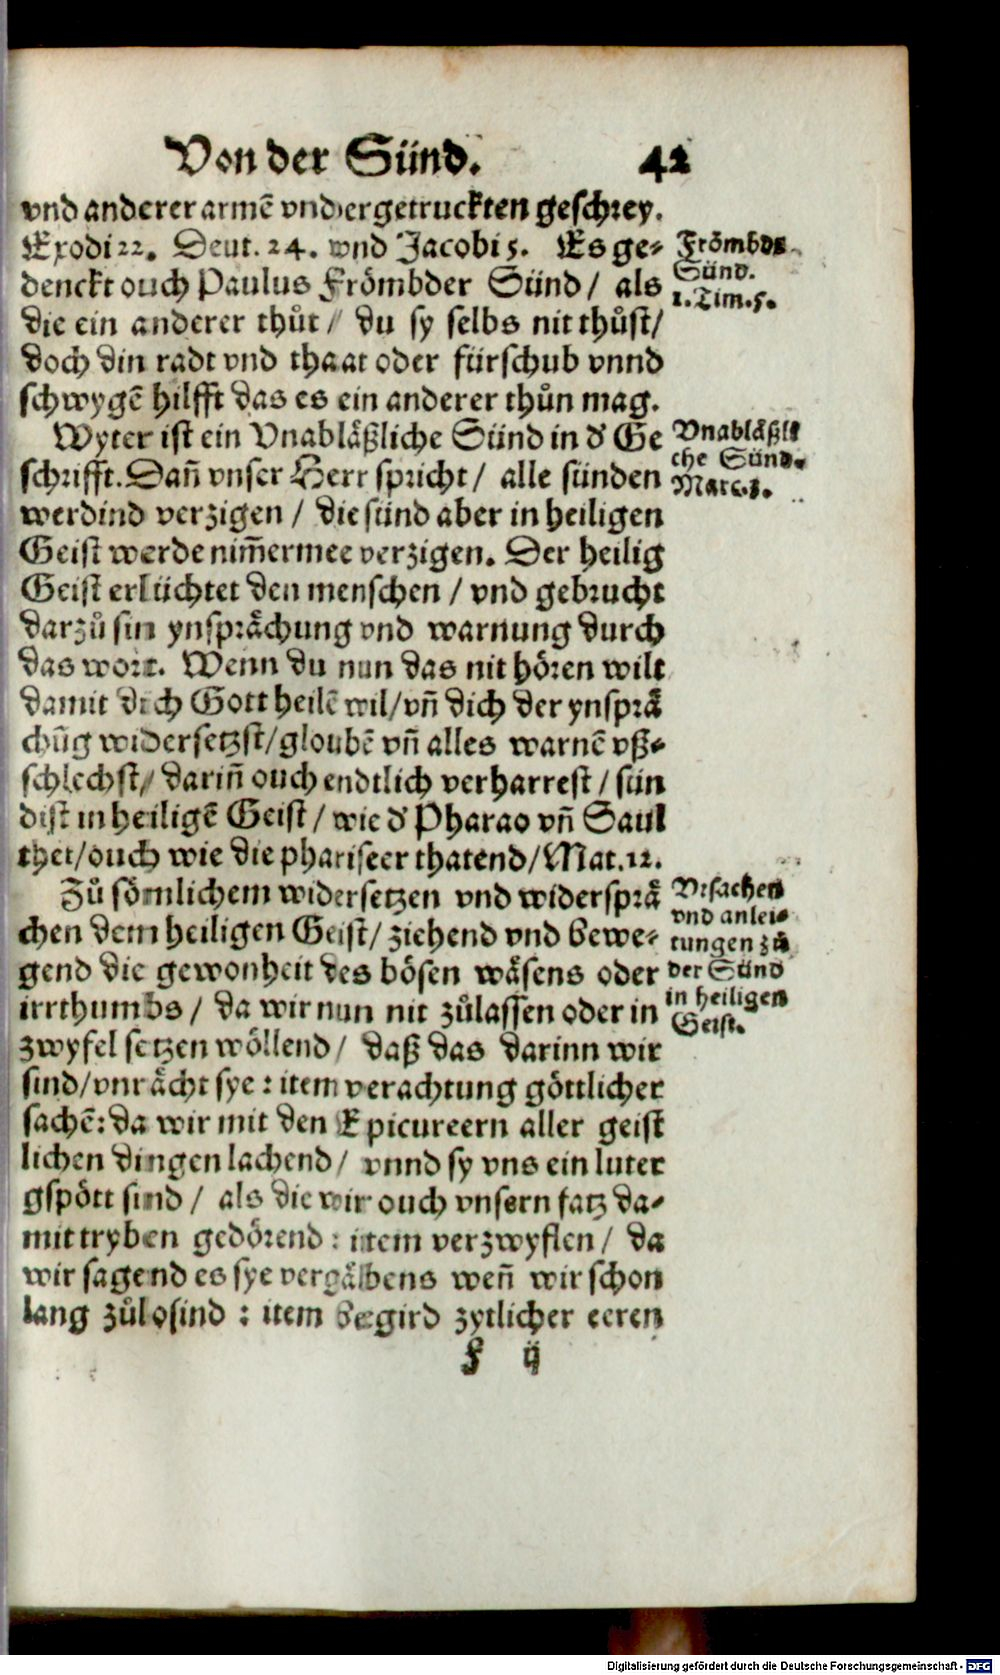 Von der Sünd. 42
vnd anderer armē vndergetruckten geschrey.
Exodi 22. Deut. 24. vnd Jacobi 5. Es ge-
denckt ouch Paulus Frömbder Sünd / als
die ein anderer thůt / du sy selbs nit thůst/
doch din radt vnd thaat oder fürschub vnnd
schwygē hilfft das es ein anderer thůn mag.
Frömbde
Sünd.
1. Tim. 5.
Wyter ist ein Vnabläßliche Sünd in d' Ge
schrifft. Dañ vnser Herr spricht / alle sünden
werdind verzigen / die sünd aber in heiligen
Geist werde nim̃ermee verzigen. Der heilig
Geist erlüchtet den menschen / vnd gebrucht
darzů sin ynsprächung vnd warnung durch
das wort. Wenn du nun das nit hören wilt
damit dich Gott heilē wil/vñ dich der ynsprä
chũg widersetzst/gloubē vñ alles warnē vß-
schlechst/ dariñ ouch endtlich verharrest / sün
dist in heiligē Geist / wie d' Pharao vñ Saul
thet/ouch wie die phariseer thatend/Mat. 12.
Vnabläßli
che Sünd.
Marc. 3.
Zů sömlichem widersetzen vnd widersprä
chen dem heiligen Geist/ ziehend vnd bewe-
gend die gewonheit des bösen wäsens oder
irrthumbs / da wir nun nit zůlassen oder in
zwyfel setzen wöllend / daß das darinn wir
sind/vnrächt sye : item verachtung göttlicher
sachē: da wir mit den Epicureern aller geist
lichen dingen lachend / vnnd sy vns ein luter
gspött sind / als die wir ouch vnsern fatz da-
mit tryben gedörend : item verzwyflen / da
wir sagend es sye vergäbens weñ wir schon
lang zůlosind : item begird zytlicher eeren
Vrsachen
vnd anlei-
tungen zů
der Sünd
in heiligen
Geist.
f ij
Digitalisierung gefördert durch die Deutsche Forschungsgemeinschaft - DFG